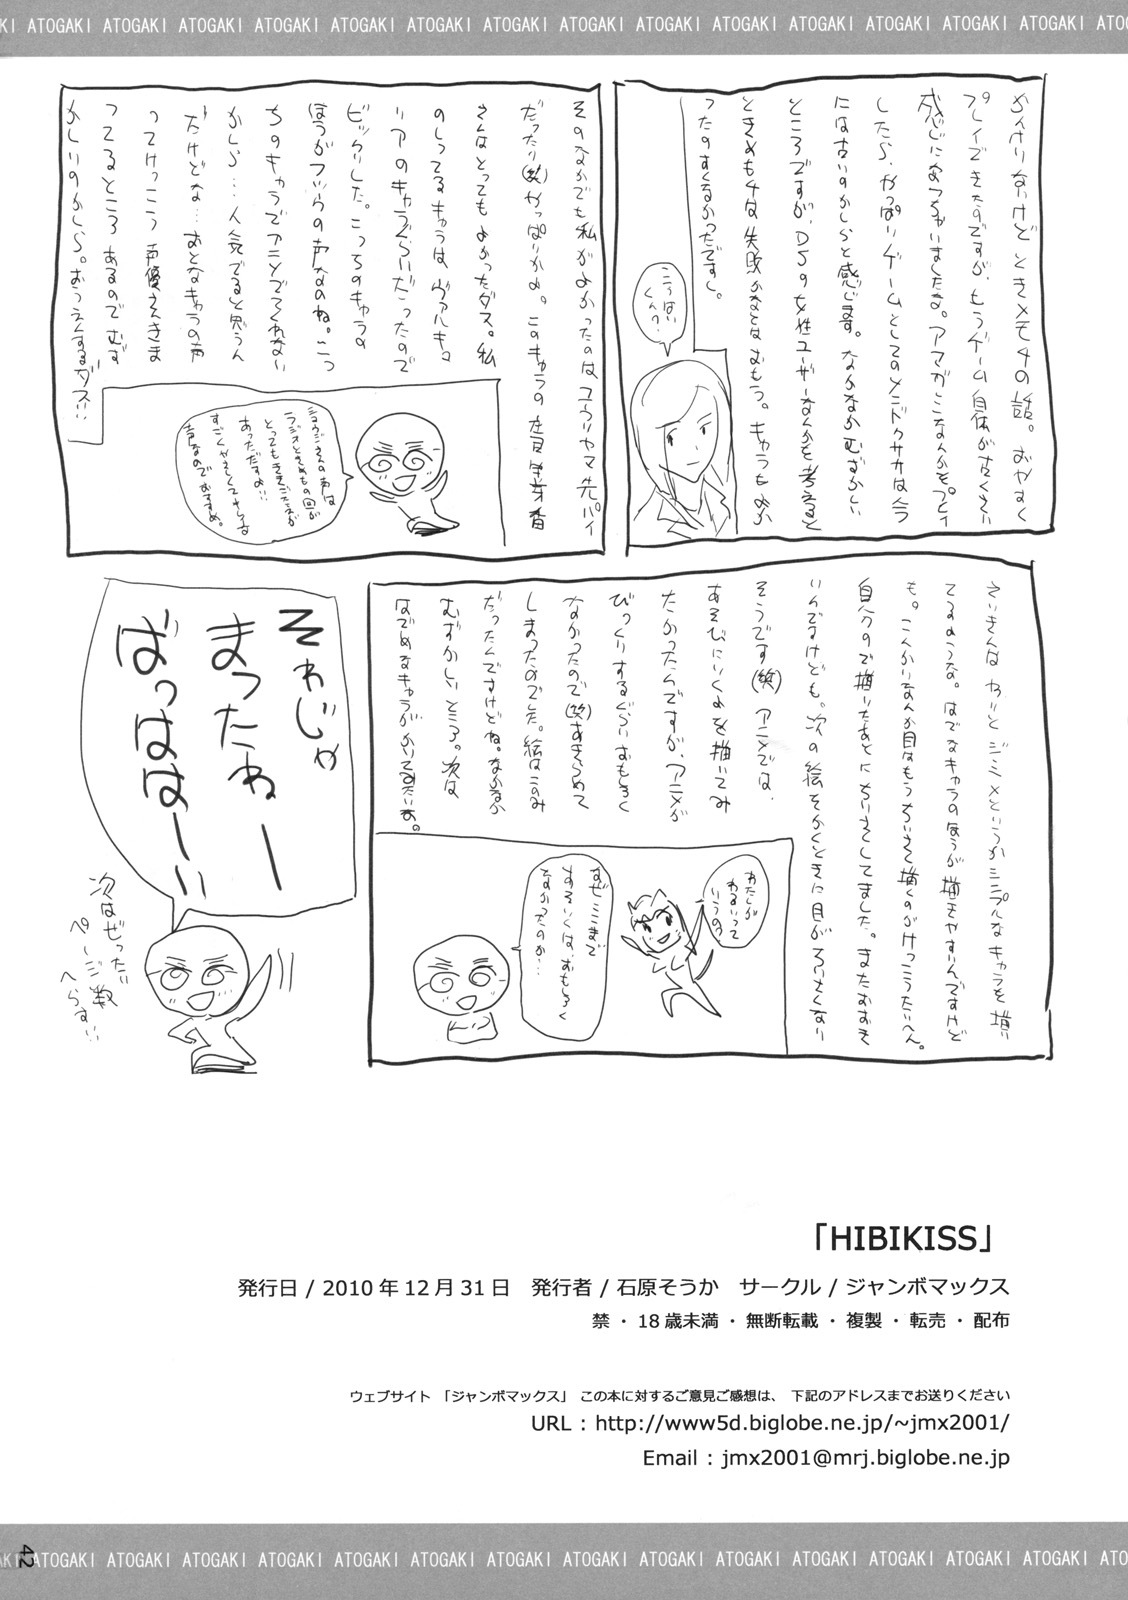 ATOGAKI ATOGAKI ATOGAKI ATOGAKI ATOGAKI ATOGAKI ATOGAKI ATOGAKI ATOGAKI ATOGAKI ATOGAKI ATOGAKI ATOGAKI ATOGAKI
かんけいないけど ときメモ4の話。おやすく
プレイできたのですが、もうゲーム自体が古くさい
感じにあっちゃいましたな。アマガミこなんかをプレイ
したら、やっぱりゲームとしてのメンドクササは今
には古いのかしらと感じます。なかなかむずかしい
ところですが、DSの女性ユーザーなんかを考えると
ときメモ4は失敗かなとはおもう。キャラもよか
ったのすくなかったですし。
こうはい
くん?
そのなかでも私がよかったのはユウリヤマ先パイ
だったり(笑)やっぱりかよ。このキャラの庄司宇芽香
さんはとってもよかったダス。私
のしってるキャラはヴァルキ。
リアのキャラぐらいだったので
ビックリした。こっちのキャラの
ほうがフツウの声なのね。こっ
ちのキャラでアニメでてくれない
かしら…人気でると思うん
だけどな…おとなキャラの声
ってけっこう声優さんきま
ってるところあるのでむず
かしいのかしら。おうえんするダス!!
ショウジさんの声は
ラジオときめもの回が
とってもききごたえが
あっただすよ!!
すごくやさしくてキレイな
声なのでおすすめ。
さいきんはわりとジミメというかシンプルなキャラを描い
てるような。はでなキャラのほうが描きやすいんですけど
も。こんかいなんか目はもうちいさく描くのがけっこうたいへん。
自分ので描いたあとにちいさくしてました。またおおき
いんですけども。次の絵をかくときに目がちいさくなり
そうです(笑)アニメでは、
あそびにいくよを描いてみ
たかったんですが、アニメが
びっくりするぐらいおもしろく
なかったので(笑)あきらめて
しまったのでした。絵はこのみ
だったんですけどね。なかなか
むずかしいところ。次は
はでめなキャラがかいてみたいなぁ。
わたしが
わるいって
いうの?
なぜここまで
すごいくらいおもしろく
なかったのか…
それじゃ
まったねー
ばっはは〜い
次はぜったい
ページ数
へらす!!
「HIBIKISS」
発行日 / 2010 年 12 月 31 日　発行者 / 石原そうか　サークル / ジャンボマックス
禁 ・ 18 歳未満 ・ 無断転載 ・ 複製 ・ 転売 ・ 配布
ウェブサイト 「ジャンボマックス」 この本に対するご意見ご感想は、 下記のアドレスまでお送りください
URL : http://www5d.biglobe.ne.jp/~jmx2001/
Email : jmx2001@mrj.biglobe.ne.jp
42
ATOGAKI ATOGAKI ATOGAKI ATOGAKI ATOGAKI ATOGAKI ATOGAKI ATOGAKI ATOGAKI ATOGAKI ATOGAKI ATOGAKI ATOGAKI ATOGAKI